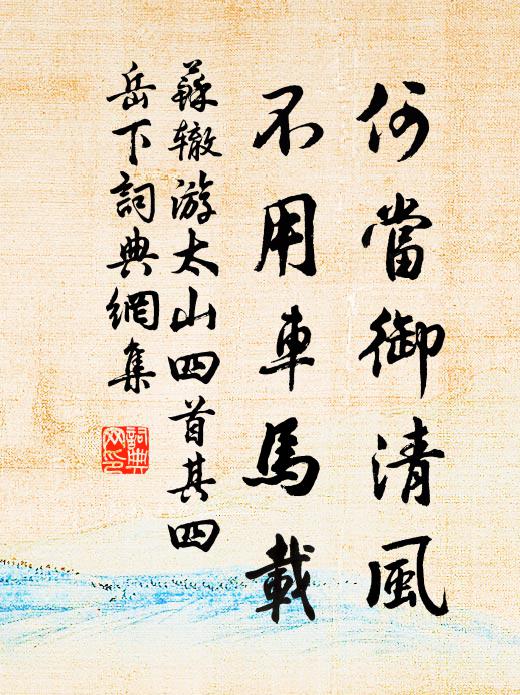 何當御清風
不用車馬載
蘇辙游太山四首其四
岳下詞典網集
詞典
网印